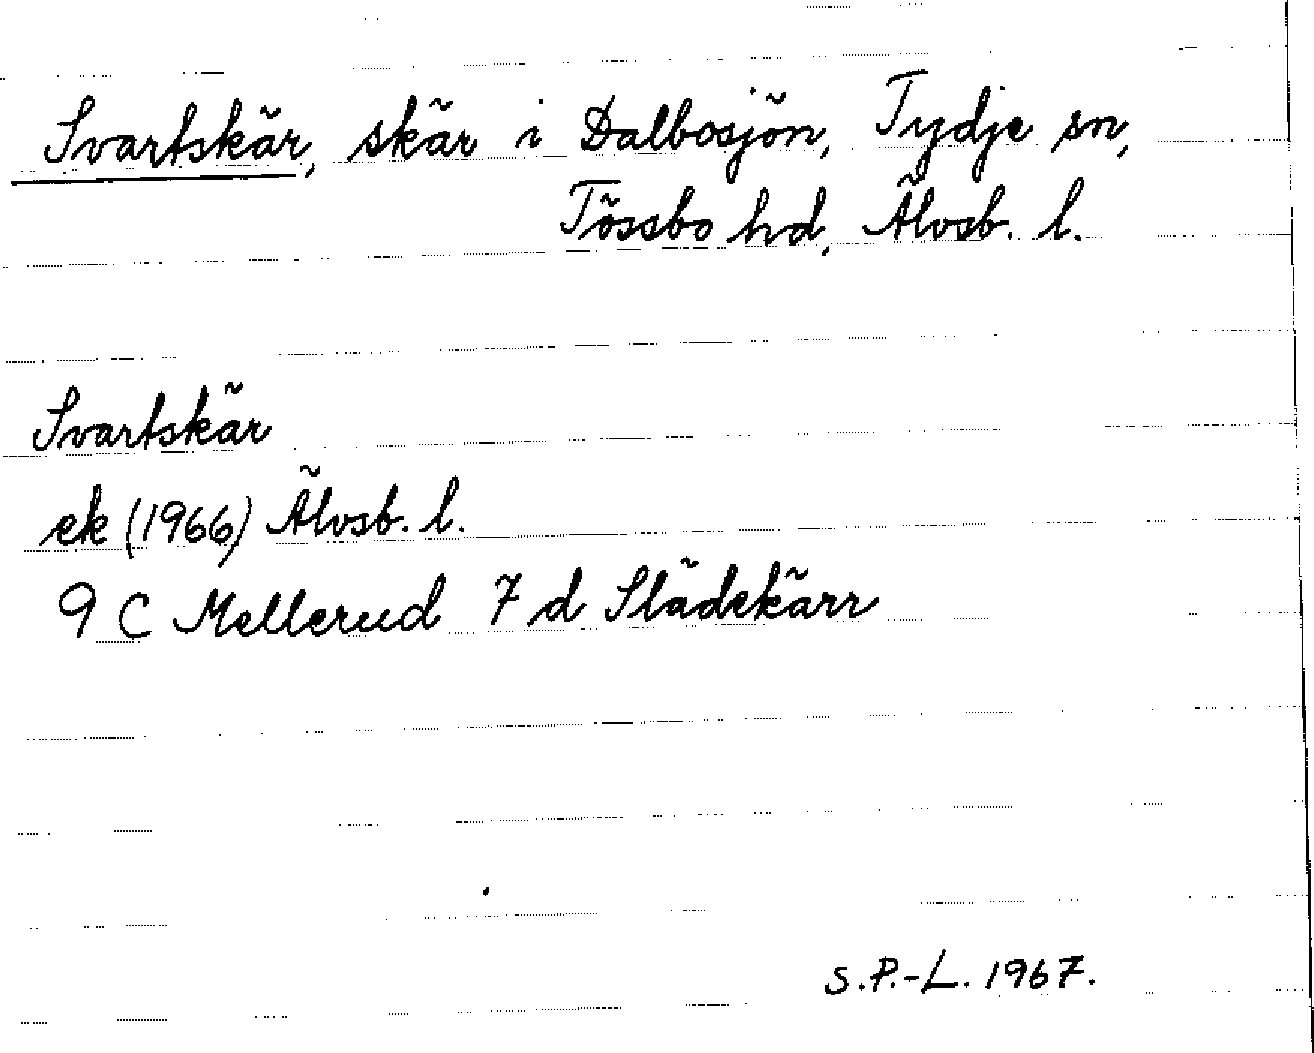 Svartskär, skär i Dalbosjön, Tydje sn,
Tössbo hd, Älvsb. l.
Svartskär
ek (1966) Älvsb. l.
9 C Mellerud 7 d Slädekärr
S.P.-L. 1967.